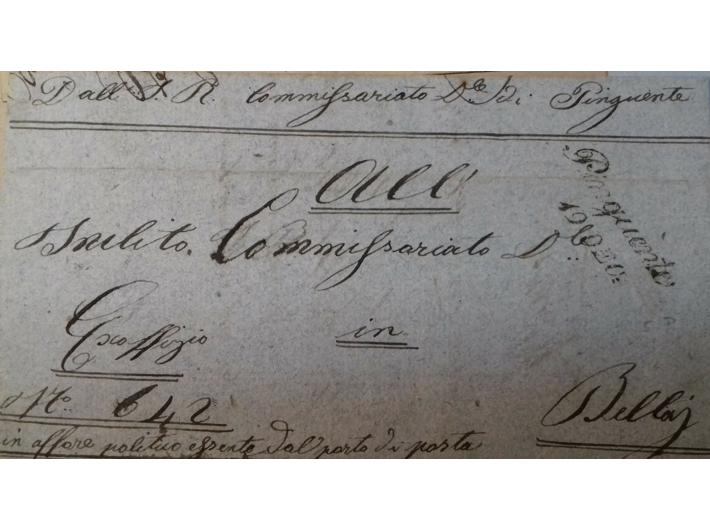 Dall' I. R. Commissariato D.le di Pinguente
All'
Inclito Commissariato D.le
Pinguente
Exoffizio in
N.o 642 Bellaj
in affare politico esente dal porto di posta